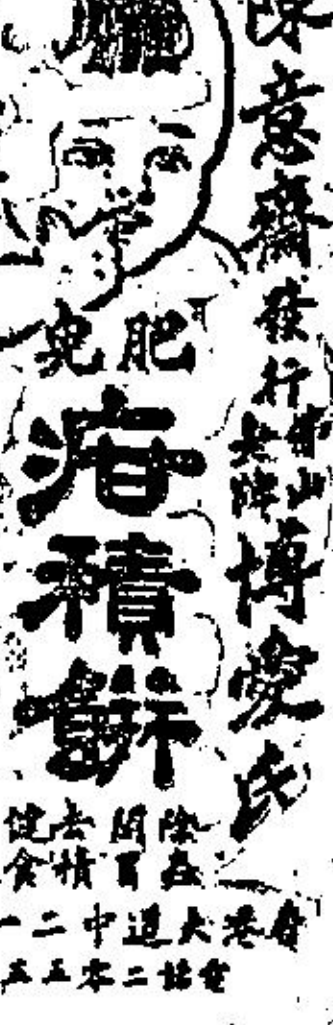 陳意齋發行
佛山
博愛氏
肥兒
疳積餅
除蟲
開胃
去積
健食
香港大道中二一
電話二零五五